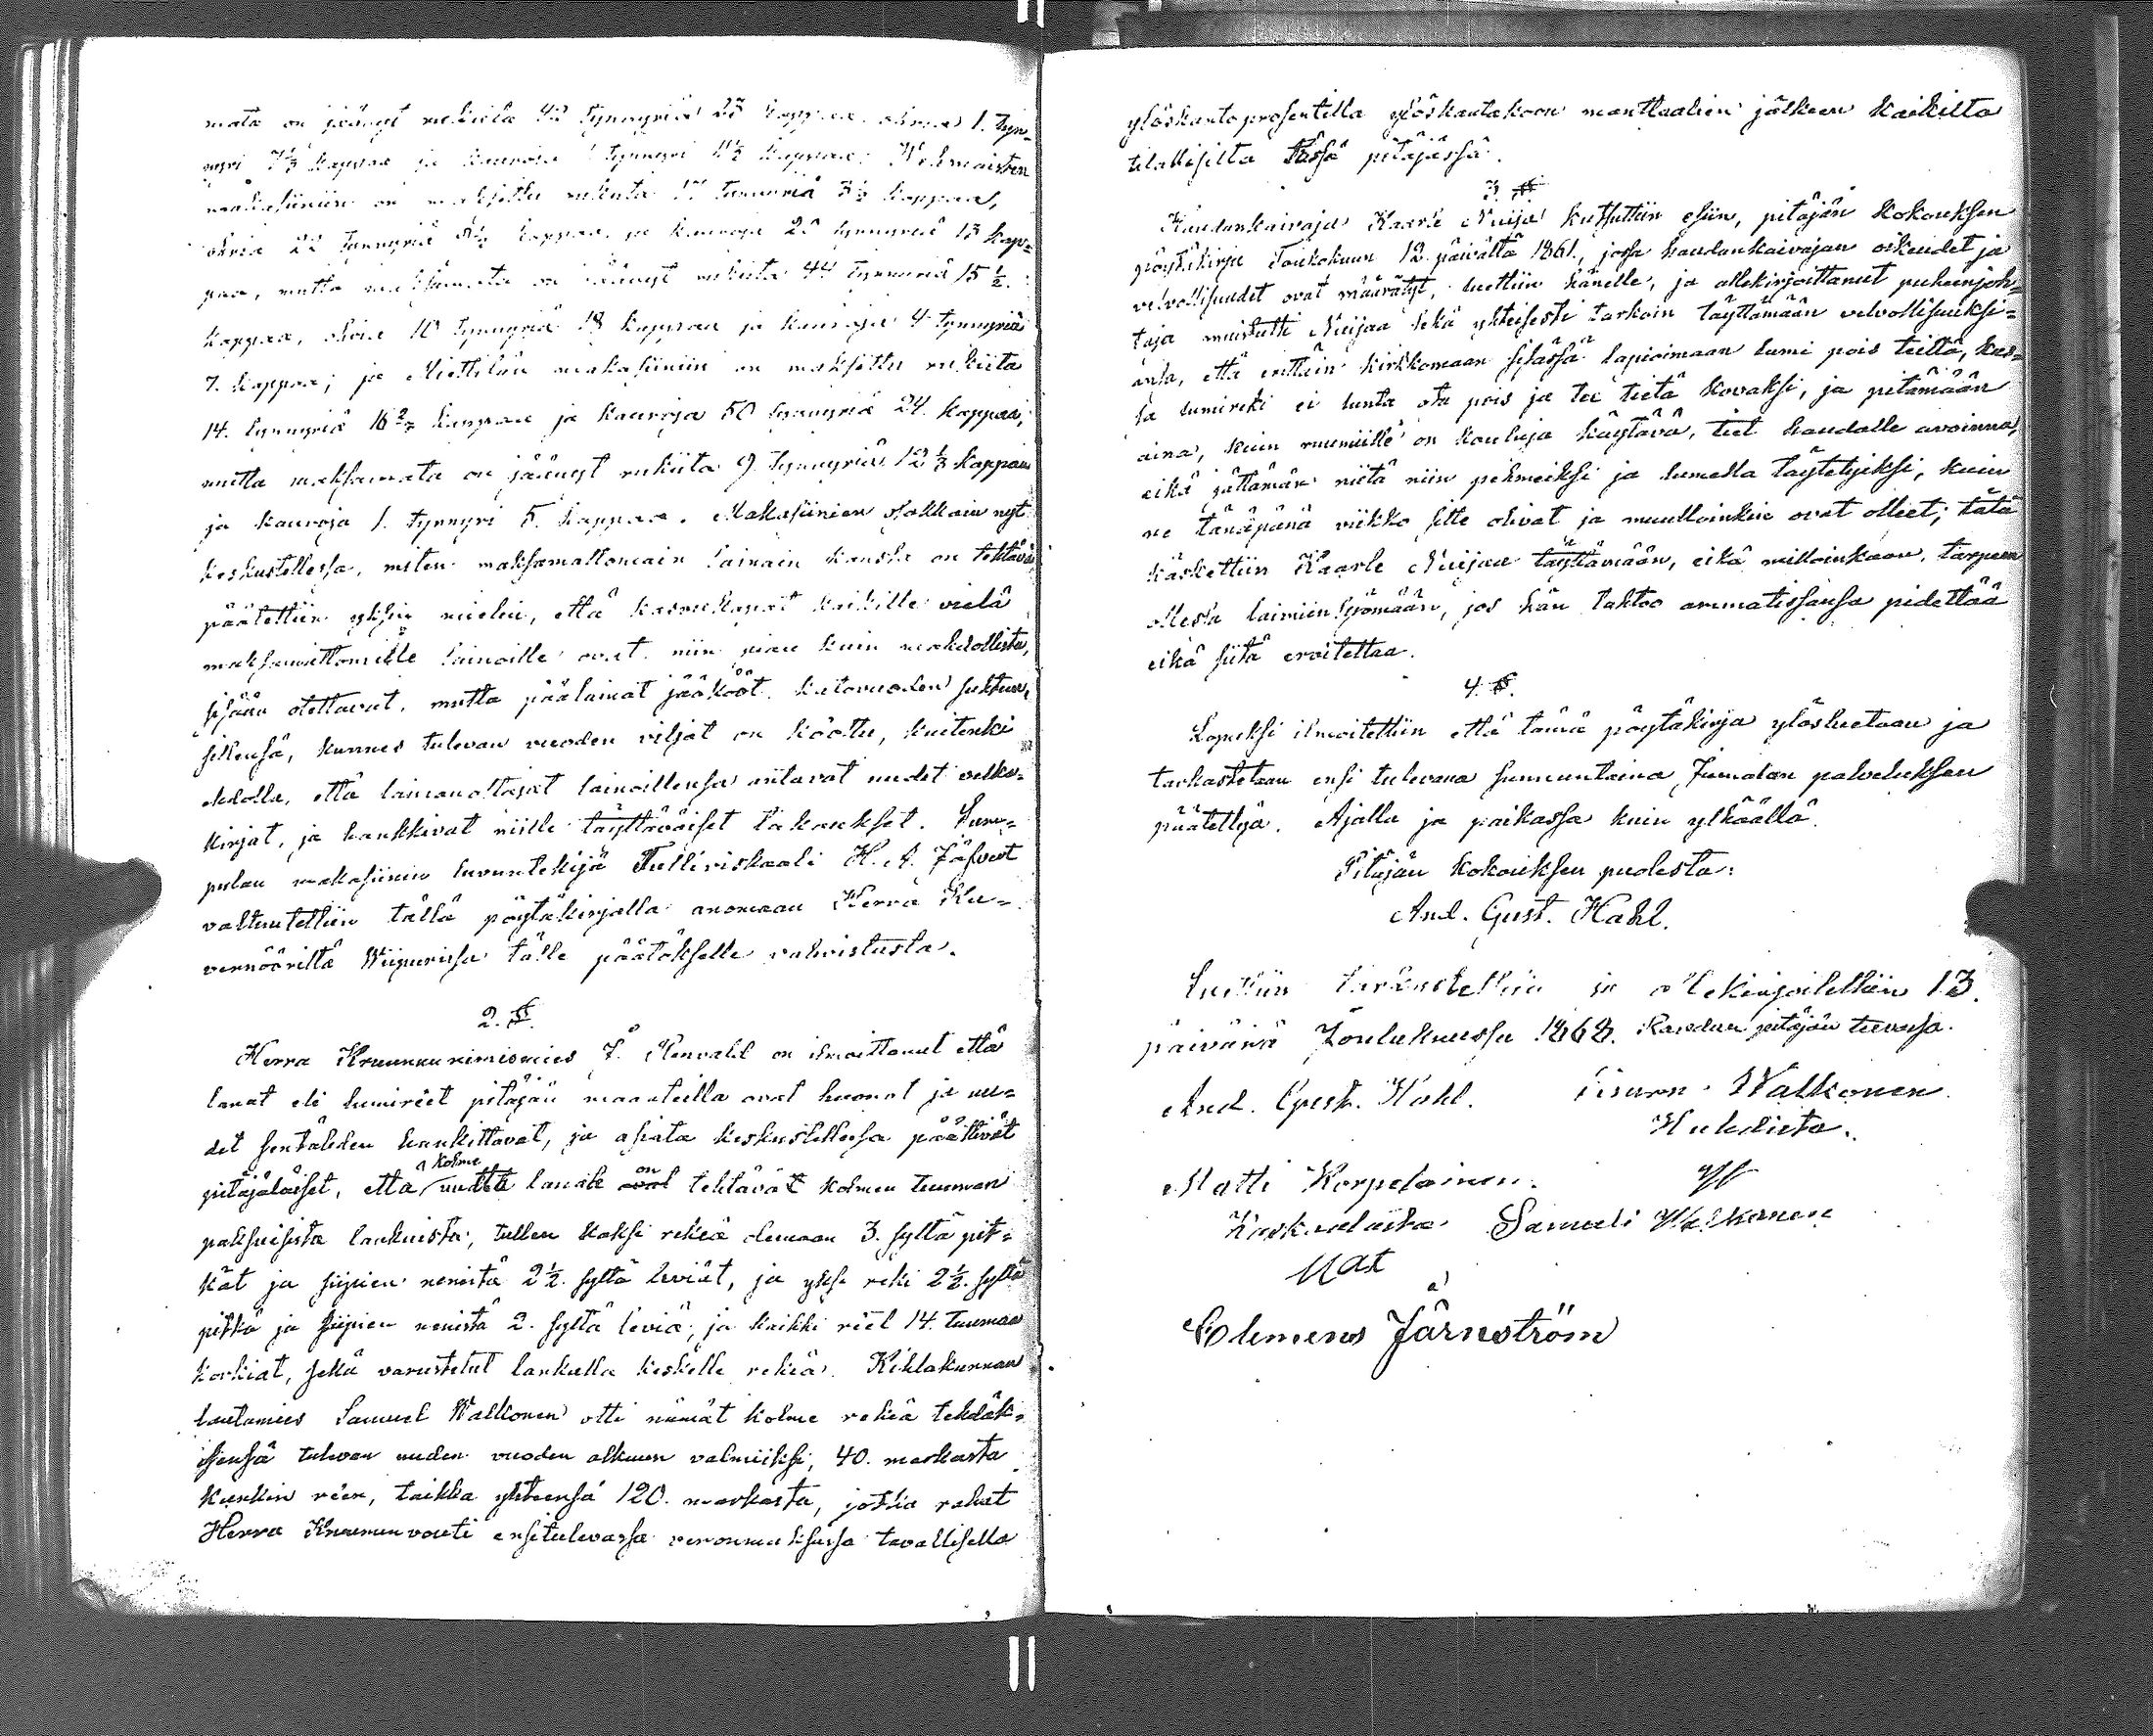 mata on jäänyt rukiita 42 Tynnyriä 23 kappaa ohria 1. Tyn=
nyri 7½ kappaa ja kauroja 1 Tynnyri 4½ kappaa; Wehmaisten
makasiiniin on maksettu rukiita 17 Tynnyriä 3½ kappaa,
ohria 22 Tynnyriä 8½ kappaa ja kauroja 20 tynnyriä 13 kap=
paa, mutta maksamata on jäänyt rukiita 44 Tynnyriä 15 ½.
kappaa, ohria 10 Tynnyriä 18 kappaa ja kauroja 4 Tynnyriä
7. kappaa; ja Miettilän makasiiniin on maksettu rukiita
14. tynnyriä 16 ⅔ kappaa ja kauroja 50 tynnyriä 24. kappaa,
mutta maksamata on jäänyt rukiita 9. Tynnyriä 12 ⅓ kappaa
ja kauroja 1. tynnyri 5. kappaa. Makasiinien osakkain nyt
keskustellessa, miten maksamattomain lainain kanssa on tehtävä,
päätettiin yksin mielin, että kasvukapat kaikille vielä
maksamattomille lainoille ovat niin pian kuin mahdollista,
sisään otettavat, mutta päälainat jääkööt katovuoden suhteen,
sillensä, kunnes tulevan vuoden viljat on koottu, kuitenki
ehdolla, että lainanottajat lainoillensa antavat uudet velka=
kirjat, ja hankkivat niille täyttäväiset takaukset. Sim=
pulan makasiinin luvuntekijä Tulliviskaali K. A. Jäfvert
valtuutettiin tällä pöytäkirjalla anomaan Herra Ku=
vernööriltä Wiipurissa tälle päätökselle vahvistusta.
2. §.
Herra Kruununnimismies J. Renvahl on ilmoittanut että
lanat eli lumireet pitäjän maanteillä ovat huonot ja uu=
det sentähden hankittavat, ja asiata keskustellessa päättivät
pitäjäläiset, että kolme uutta lanaa on tehtävät kolmen tuuman
paksuisista lankuista, tullen kaksi rekeä olemaan 3. syltä pit=
kät ja siipien nenistä 2½. syltä leviät, ja yksi reki 2½. syltä
pitkä ja siipien nenistä 2. syltä leviä, ja kaikki reet 14. tuumaa
korkiat, sekä varustetut lankulla keskelle rekeä. Kihlakunnan
lautamies Samuel Walkonen otti nämät kolme rekeä tehdäk=
sensä tulevan uuden vuoden alkuun valmiiksi, 40. markasta
kunkin reen, taikka yhteensä 120. markasta, jotka rahat
Herra Kruununvouti ensitulevassa veronmaksussa tavallisella
ylöskantoprosentilla ylöskantakoon manttaalien jälkeen kaikilta
tilallisilta tässä pitäjässä.
3. §.
Haudankaivaja Kaarle Nuija kutsuttiin esiin, pitäjän kokouksen
pöytäkirja Toukokuun 12. päivältä 1861., jossa haudankaivajan oikeudet ja
velvollisuudet ovat määrätyt, luettiin hänelle, ja allekirjoittanut puheenjoh=
taja muistutti Nuijaa sekä yhteisesti tarkoin täyttämään velvollisuuksi=
ansa, että erittäin kirkkomaan sisässä lapioimaan lumi pois teiltä, kus=
sa lumireki ei lunta ota pois ja tee tietä kovaksi, ja pitämään
aina, kuin ruumiille on kouluja käytävä, tiet haudalle avoinna,
eikä jättämän niitä niin pehmeiksi ja lumella täytetyiksi, kuin
ne tänäpänä viikko sitte olivat ja muulloinkin ovat olleet; tätä
käskettiin Kaarle Nuijan täyttämään, eikä milloinkaan, tarpeen
ollessa laimiin lyömään, jos hän tahtoo ammatissansa pidettää
eikä siitä eroitettaa.
4. §.
Lopuksi ilmoitettiin että tämä pöytäkirja ylösluetaan ja
tarkastetaan ensi tulevana sunnuntaina Jumalan palveluksen
päätettyä. Ajalla ja paikassa kuin ylhäällä.
Pitäjän kokouksen puolesta:
And. Gust. Hahl.
Luettiin tarkastettiin ja allekirjoitettiin 13.
päivänä Joulukuussa 1868. Raudun pitäjän tuvassa.
And. Gust. Hahl. Simon Walkonen
Huhdista.
Matti Korpelainen.
Samueli Walkonen
Clemens Järnström